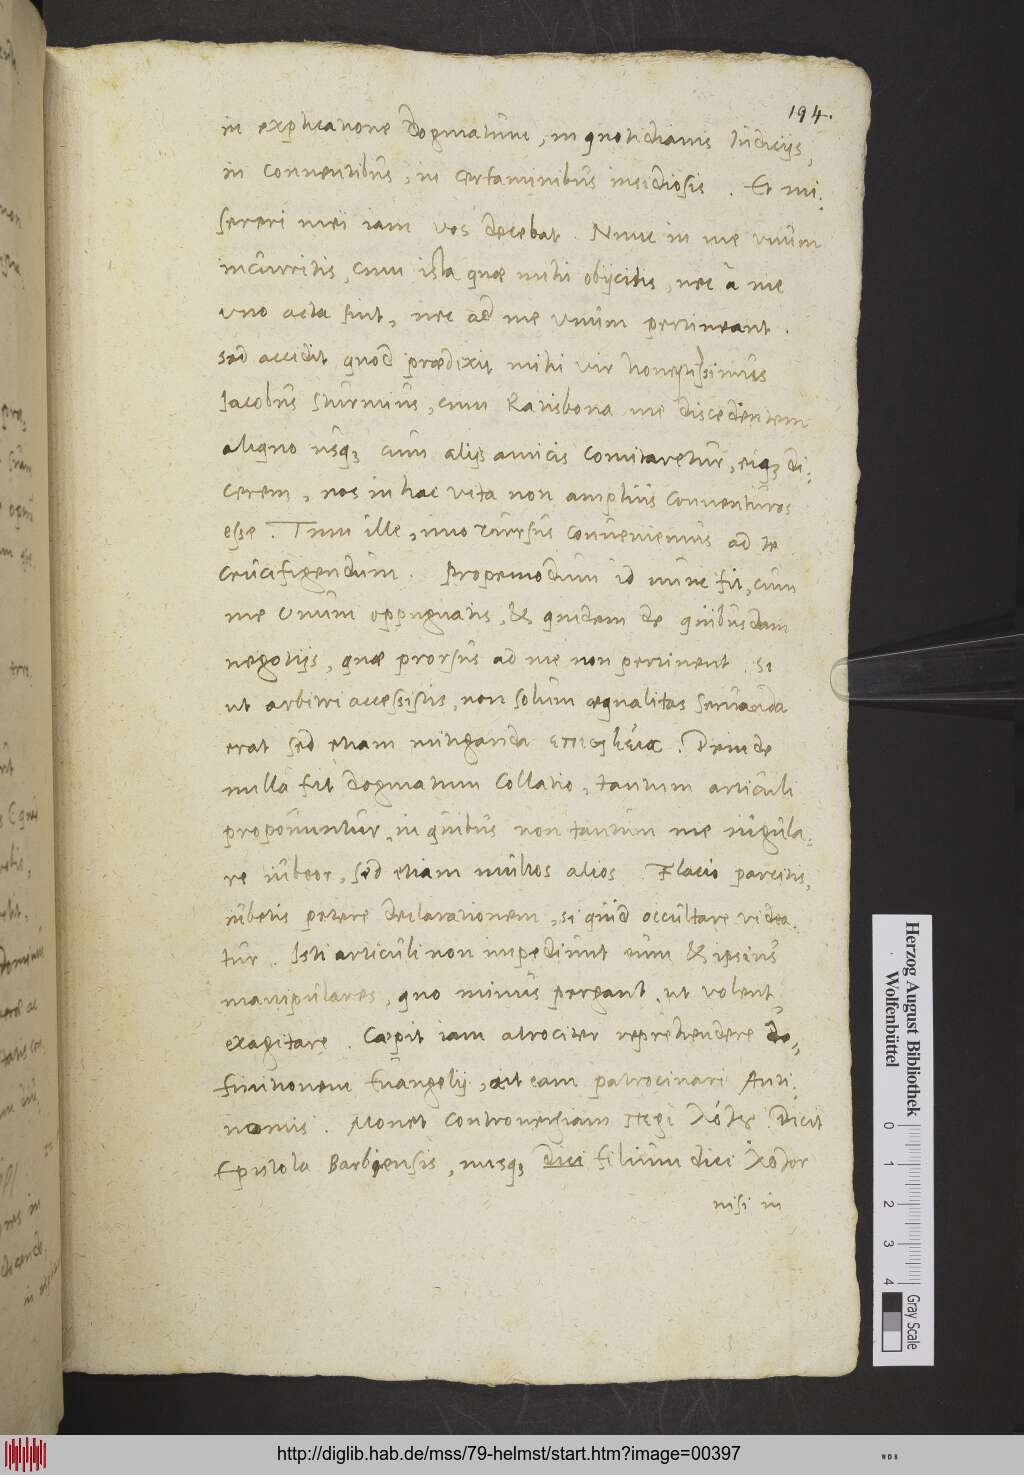 194.
in explicatione Dogmatum, in quotidianis Iudicijs,
in Conventibus, in Certaminibus insidiosis. Et mi:
sereri mei iam vos decebat. Nunc in me unum
incurritis, cum ista quae mihi obijcitis, nec à me
uno acta sint, nec ad me unum pertineant.
Sed accidit quod praedixit mihi vir honestissimus
Jacobus Sturmius, cum Ratisbona me discedentem
aliquo usq; cum alijs amicis Comitaretur, eiq; di:
cerem, nos in hac vita non amplius Conventuros
esse. Tum ille, imo rursus Conveniemus ad te
Crucifigendum. Propemodum id nunc fit, cum
me Unum oppugnatis, & quidem de quibusdam
negotijs, quae prorsus ad me non pertinent. Si
ut arbitri accessistis, non solum aequalitas servanda
erat sed etiam mitiganda επιεικεία. Deinde
nulla fit Dogmatum Collatio, tantum articuli
proponuntur, in quibus non tantum me iugula:
re iubeor, sed etiam multos alios. Flacio parcitis,
iubetis petere declarationem, si quid occultare videa
tur. Isti articuli non impediunt eum & ipsius
manipulares, quo minus pergant, ut volent
exagitare. Caepit iam atrociter reprehendere de:
finitionem Euangelij, ait eam patrocinari Anti:
nomis. Movet Controversiam περὶ λόγου. Dicit
Epistola Barbiensis, nusq; dici filium dici λόγον
nisi in
Herzog August Bibliothek
Wolfenbüttel
0 1 2 3 4
Gray Scale
http://diglib.hab.de/mss/79-helmst/start.htm?image=00397